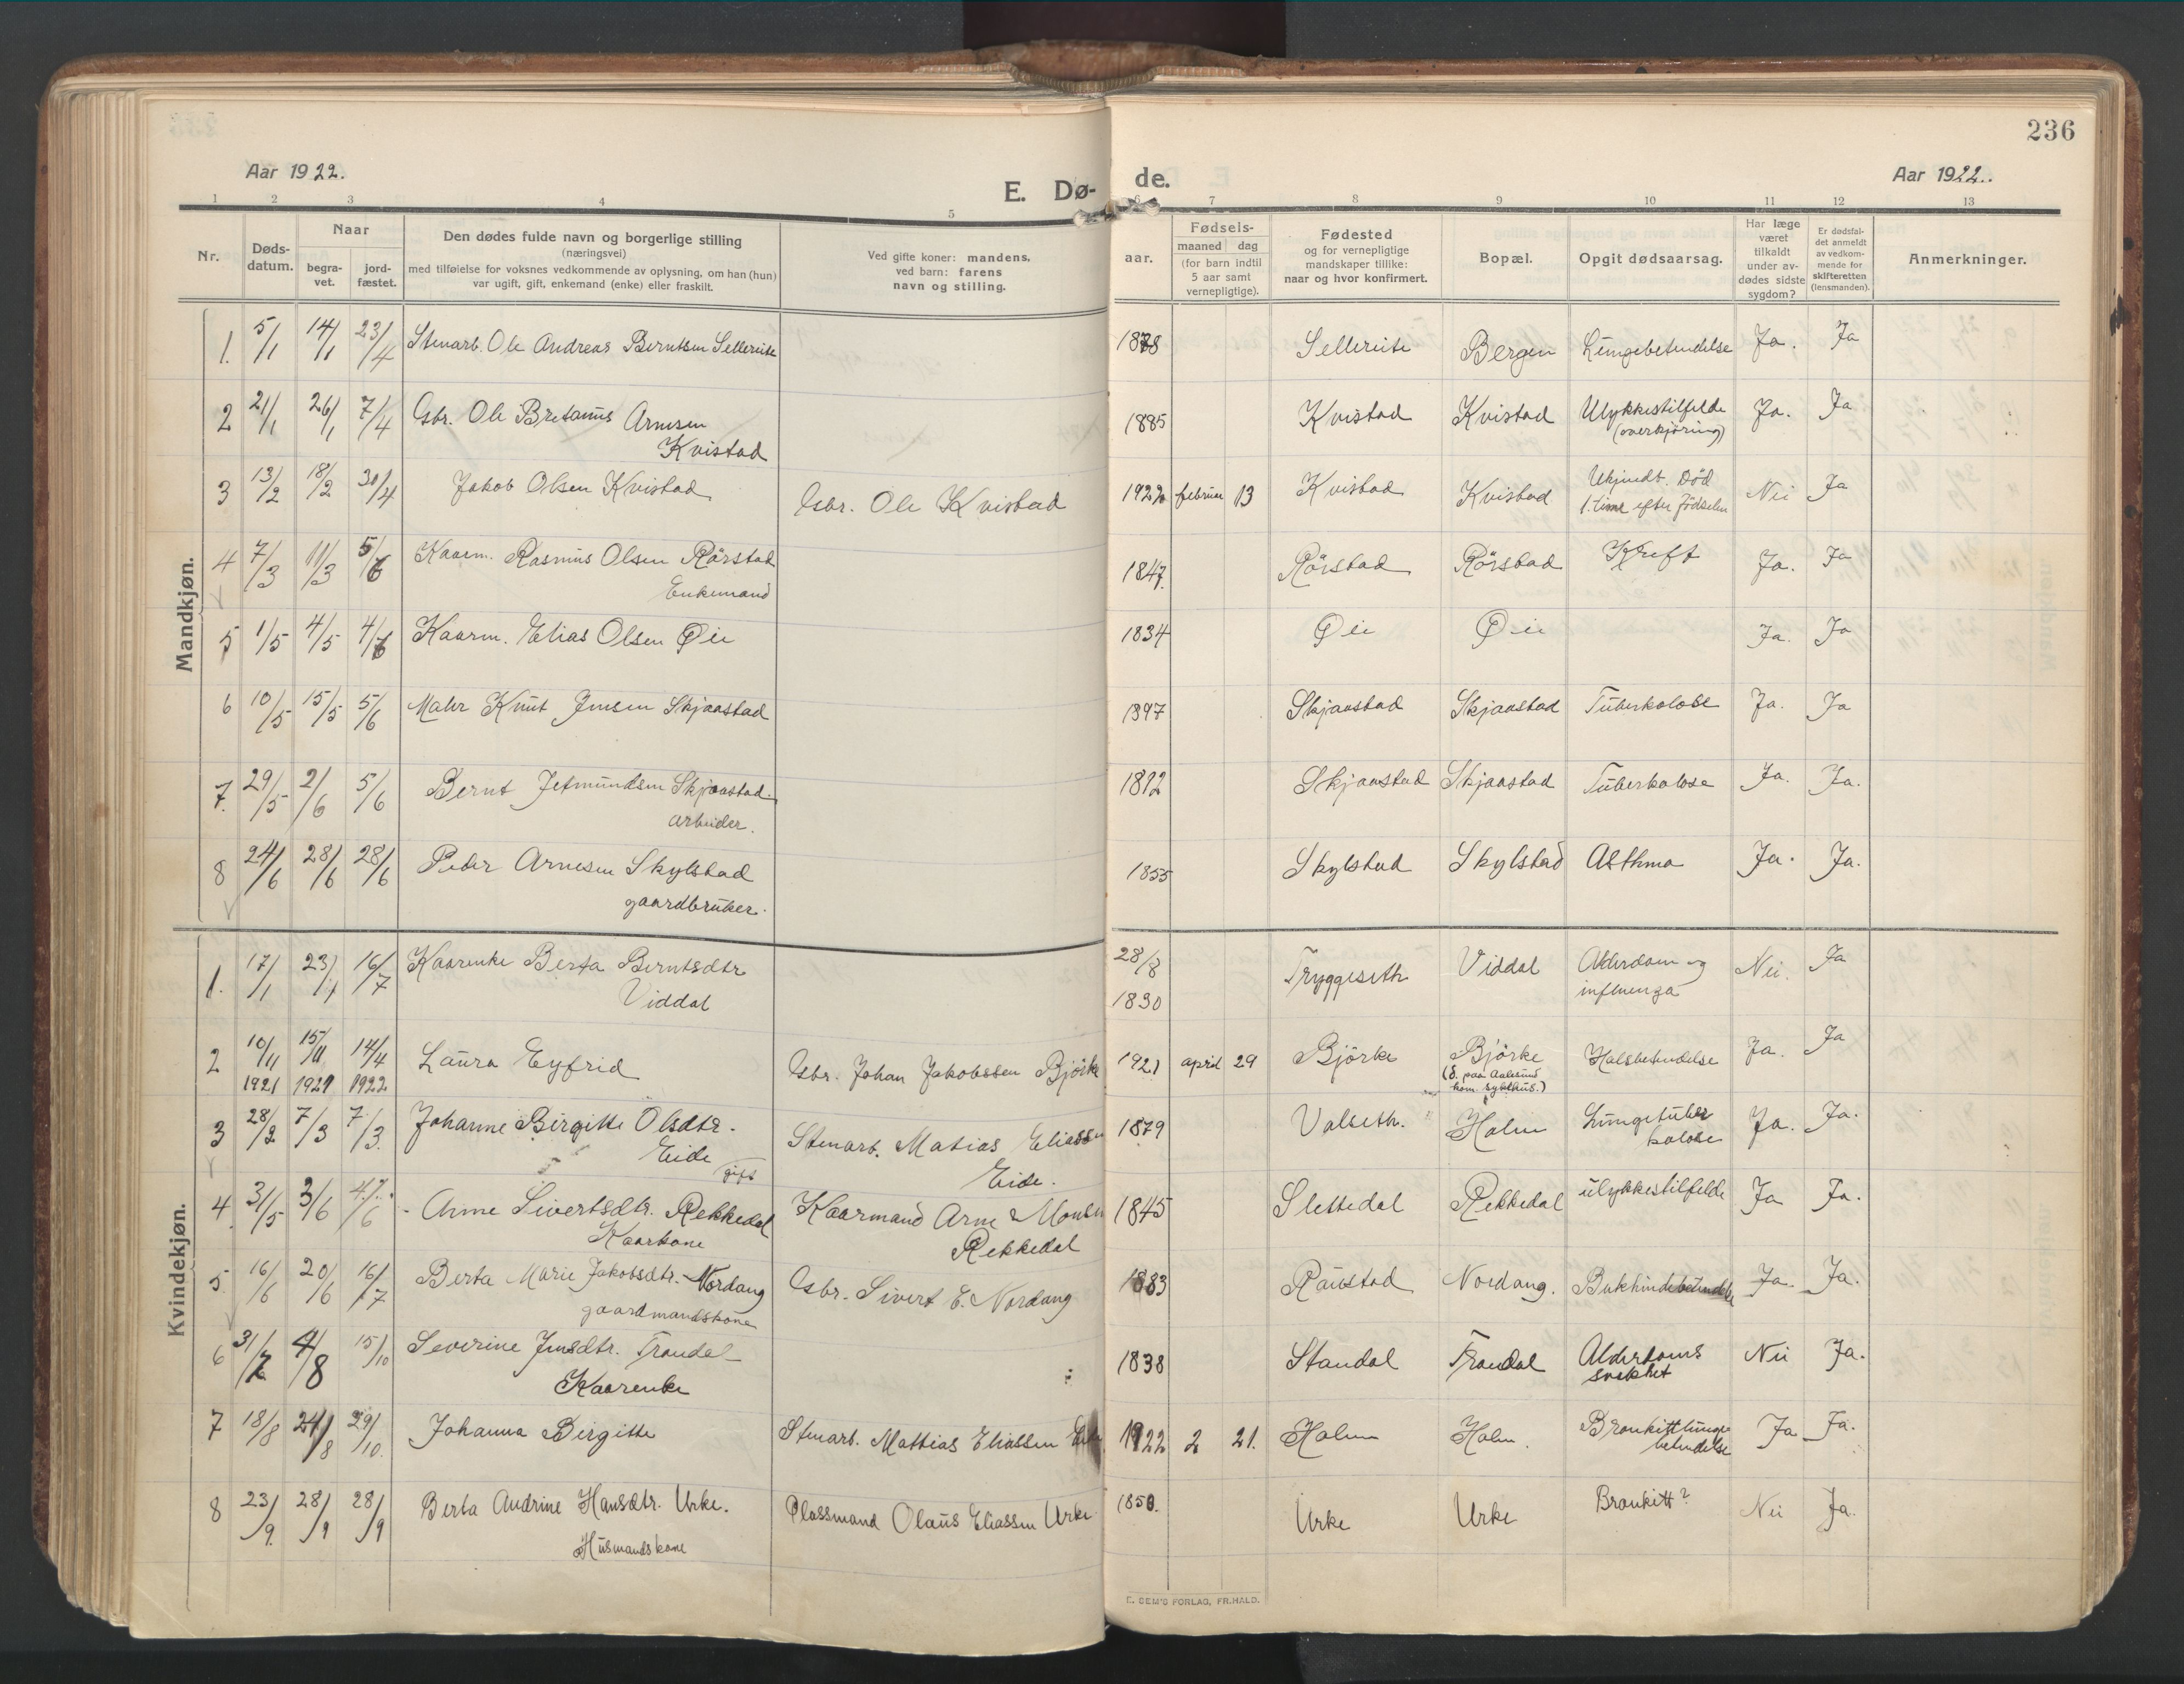 236
Aar 1922.
E. Dø- de.
Aar 1922.
1 2 3 4 5 6 7 8 9 10 11 12 13
Nr.
Døds-
datum.
Naar
begra-
vet.
jord-
fæstet.
Den dødes fulde navn og borgerlige stilling
(næringsvei)
med tilføielse for voksnes vedkommende av oplysning, om han (hun)
var ugift, gift, enkemand (enke) eller fraskilt.
Ved gifte koner: mandens,
ved barn: farens
navn og stilling.
Fødsels-
aar.
maaned dag
(for barn indtil
5 aar samt
vernepligtige).
Fødested
og for vernepligtige
mandskaper tillike:
naar og hvor konfirmert.
Bopæl.
Opgit dødsaarsag.
Har læge
været
tilkaldt
under av-
dødes sidste
sygdom?
Er dødsfal-
det anmeldt
av vedkom-
mende for
skifteretten
(lensmanden).
Anmerkninger.
Mandkjøn.
1. 5/1 14/1 23/4 Stenarb. Ole Andreas Berntsen Sellereite 1878 Sellereite Bergen Lungebetendelse Ja. Ja
2 21/1 26/1 7/4 Gbr. Ole Bretanus Arnesen
Kvistad 1885 Kvistad Kvistad Ulykkestilfelde
(overkjøring) Ja. Ja
3 13/2 18/2 30/4 Jakob Olsen Kvistad Gbr. Ole Kvistad 1922 februar 13 Kvistad Kvistad Ukjendt. Død
1. time efter fødselen Nei Ja
4 7/3 11/3 5/6 Kaarm. Rasmus Olsen Rørstad
Enkemand 1847. Rørstad Rørstad Kreft Ja. Ja
5 1/5 4/5 4/6 Kaarm. Elias Olsen Øie 1834 Øie Øie Ja. Ja
6 10/5 15/5 5/6 Maler Knut Jensen Skjaastad 1897 Skjaastad Skjaastad Tuberkolose Ja. Ja
7. 29/5 2/6 5/6 Bernt Jetmundsen Skjaastad.
arbeider. 1892 Skjaastad Skjaastad Tuberkolose Ja. Ja.
8 24/6 28/6 28/6 Peder Arnesen Skylstad
gaardbruker. 1855 Skylstad Skylstad Asthma Ja. Ja.
Kvindekjøn.
1. 17/1 23/1 16/7 Kaarenke Berta Berntsdtr
Viddal 28/8
1830 Tryggeseth Viddal Alderdom og
influenza Nei. Ja
2 10/11 15/11 14/4 Laura Eyfrid Gbr. Johan Jakobssen Bjørke 1921 april 29 Bjørke Bjørke Halsbetendelse Ja. Ja
1921 1921 1922 (d. paa Aalesund
kom. sykehus.)
3 28/2 7/3 7/3. Johanne Birgitte Olsdtr.
Eide
gift Stenarb. Matias Eliassen
Eide. 1879 Valseth. Holm Lungetuber
kolose Ja. Ja.
4 31/5 3/6 4/6 - Anne Sivertsdtr. Rekkedal
Kaarkone Kaarmand Arne Monsen
Rekkedal 1845 Slettedal Rekkedal ulykkestilfelde Ja Ja.
5 16/6 20/6 16/7 Berta Marie Jakobsdtr. Nordang
gaardmandskone Gbr. Sivert E. Nordang 1883 Raustad Nordang. Bukhindebetendelse Ja. Ja.
6 31/7 4/8 15/10 Severine Jensdtr. Trandal
Kaarenke 1838 Standal Trandal Alderdoms
svekket Nei Ja.
7 18/8 24/8 29/10. Johanna Birgitte Stenarb. Mattias Eliassen Eide 1922 2 21. Holm Holm. Bronkittlunge
betendelse Ja Ja.
8 23/9. 28/9 28/9 Berta Andrine Hansdtr. Urke.
Husmandskone Plassmand Olaus Eliassen Urke 1850. Urke Urke Bronkitt? Nei Ja.
E. SEM'S FORLAG, FR.HALD.